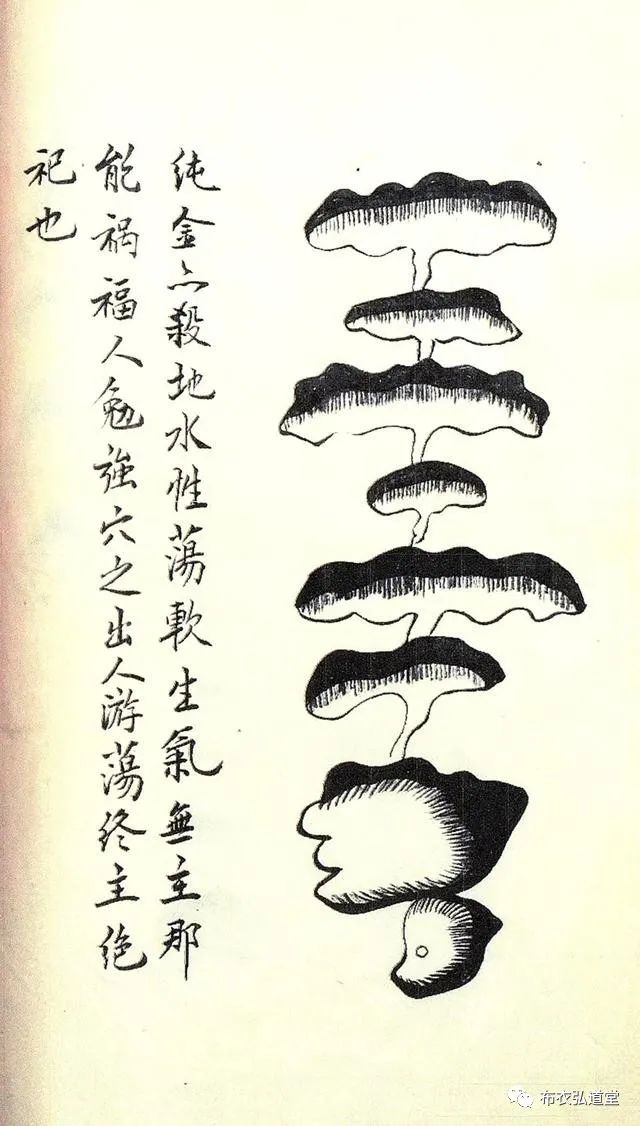 纯金六殺地水性蕩軟生氣無主那
能禍福人勉強穴之出人游蕩终主绝
祀也
布衣弘道堂